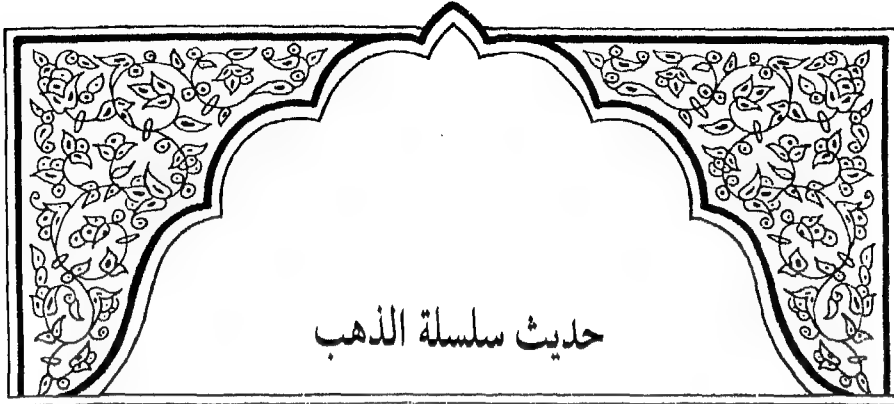 حديث سلسلة الذهب